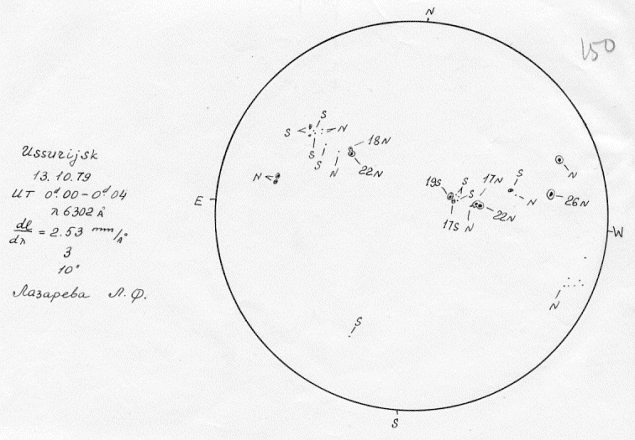 N
150
Ussurijsk
13.10.79
UT 0ᵈ.00-0ᵈ.04
λ 6302 Å
dl/dλ = 2.53 mm/Å
3
10"
Лазарева Л.Ф.
S
S N
18N
S
S N 22N
N
E
N
S
19S S S 17N
N
26N
17S N 22N
W
N
S
S